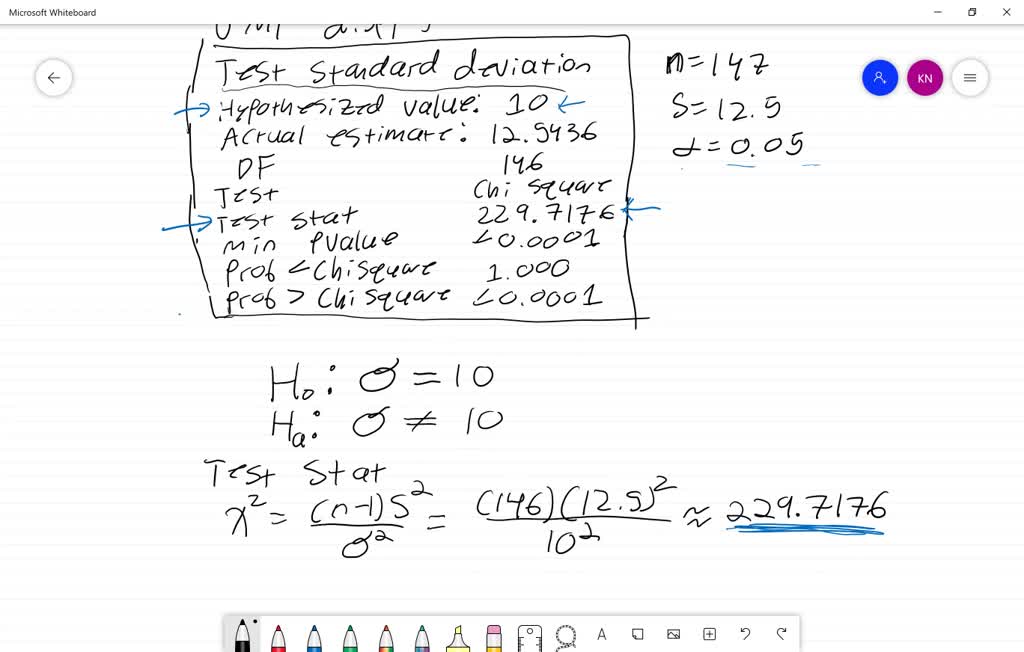 Microsoft Whiteboard
Test standard deviation
Hypothesized value: 10
Actual estimate: 12.5436
DF 146
Test Chi square
Test stat 229.7176
min Pvalue <0.0001
Prob < Chisquare 1.000
Prob > Chisquare <0.0001
n=147
S=12.5
α=0.05
KN
H₀: σ = 10
Hₐ: σ ≠ 10
Test Stat
x² = (n-1)S²/σ² = (146)(12.5)²/10² ≈ 229.7176
A